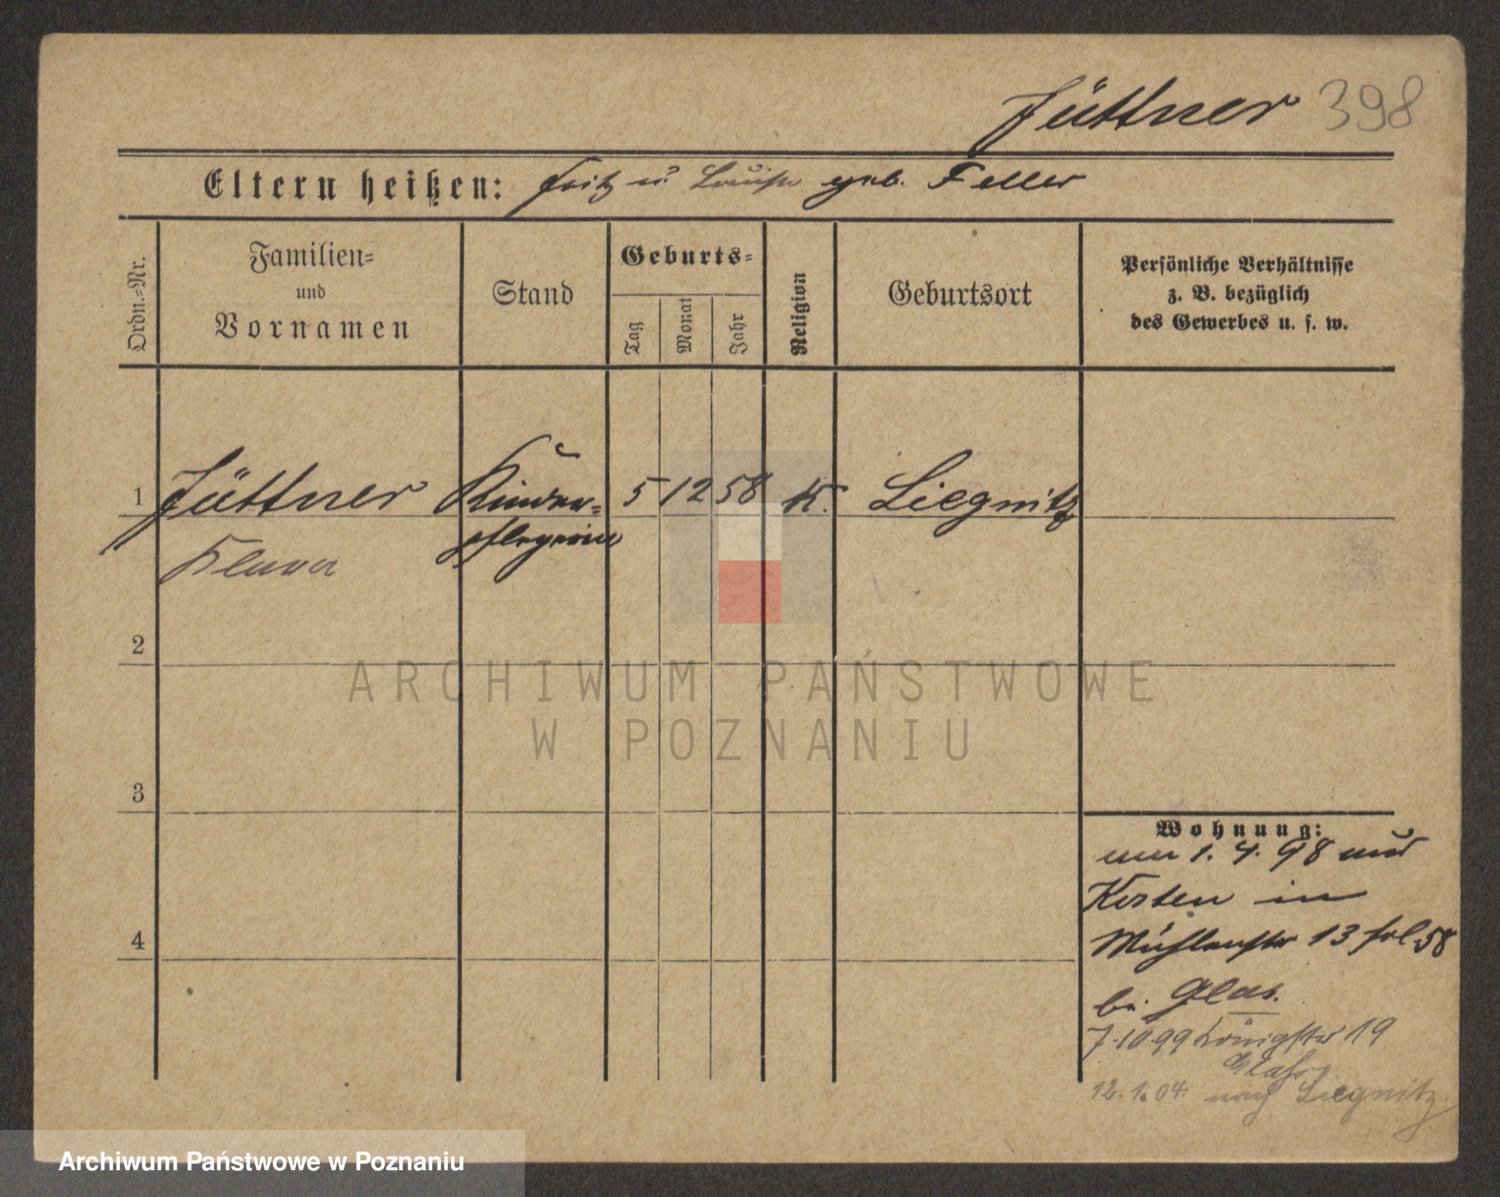 Jüttner 398
Eltern heißen: Fritz u. Louise geb. Feller
Ordn.-Nr.
Familien-
und
Vornamen
Stand
Geburts-
Tag
Monat
Jahr
Religion
Geburtsort
Persönliche Verhältnisse
z. B. bezüglich
des Gewerbes u. s. w.
1 Jüttner Kinder- 5 12 58 K. Liegnitz
Klara pflegerin
2
3
4
Wohnung:
1. 4. 98 aus
Kosten in
Mühlenstr 13 frl. 58
bei Glas.
7.10 99 Königstr 19
Glass
12. 1. 04. nach Liegnitz.
ARCHIWUM PAŃSTWOWE
W POZNANIU
Archiwum Państwowe w Poznaniu